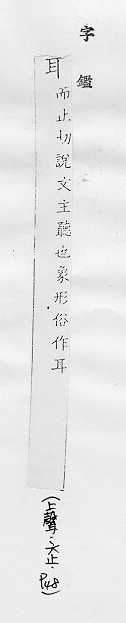 字鑑
耳 而止切說文主聽也象形俗作耳
(上聲·六止·P48)